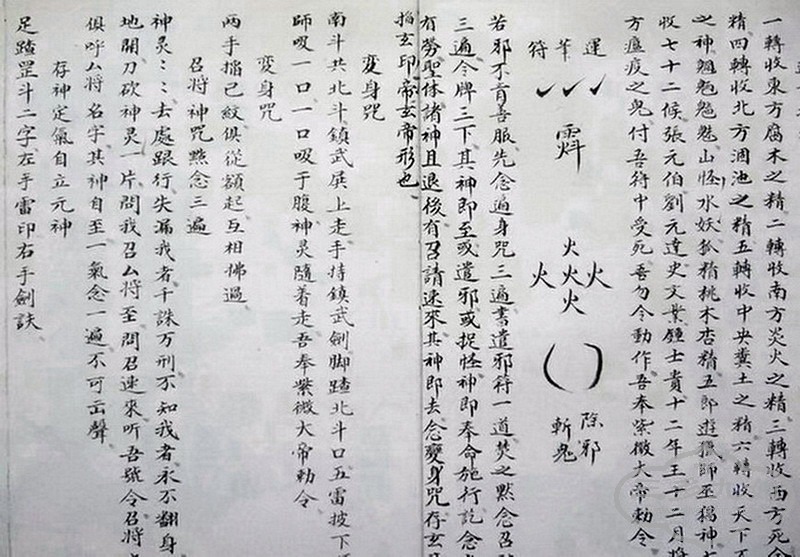 一轉收東方腐木之精二轉收南方炎火之精三轉收西方死金
精四轉收北方涸池之精五轉收中央糞土之精六轉收天下
之神山怪水妖狐精桃木杏精五郎遊獵師巫猖神
收七十二候張元伯劉元達史文業鍾士貴十二年王十二月將
方瘟疫之鬼付吾符中受死吾勿令動作吾奉紫微大帝勅令
運筆符
火
火火火
火
除邪
斬鬼
若邪不肯善服先念遍身咒三遍書遣邪符一道焚之黙念召
三遍令牌三下其神即至或遣邪或捉怪神即奉命施行訖念
有勞聖体諸神且退後有召請速來其神即去念變身咒存玄
掐玄印帝玄帝形也
變身咒
南斗共北斗鎮武展上走手持鎮武劍脚踏北斗口五雷披下
師吸一口一口吸于腹神灵隨着走吾奉紫微大帝勅令
変身咒
两手掐己紋俱從額起互相拂過
召將神咒黙念三遍
神灵〻〻去處跟行失漏我者千誅万刑不知我者永不翻身
地開刀砍神灵一片問我召厶將至問召速來听吾號令召將
俱呼厶將名字其神自至一氣念一遍不可出聲
存神定氣自立元神
足踏罡斗二字左手雷印右手劍訣